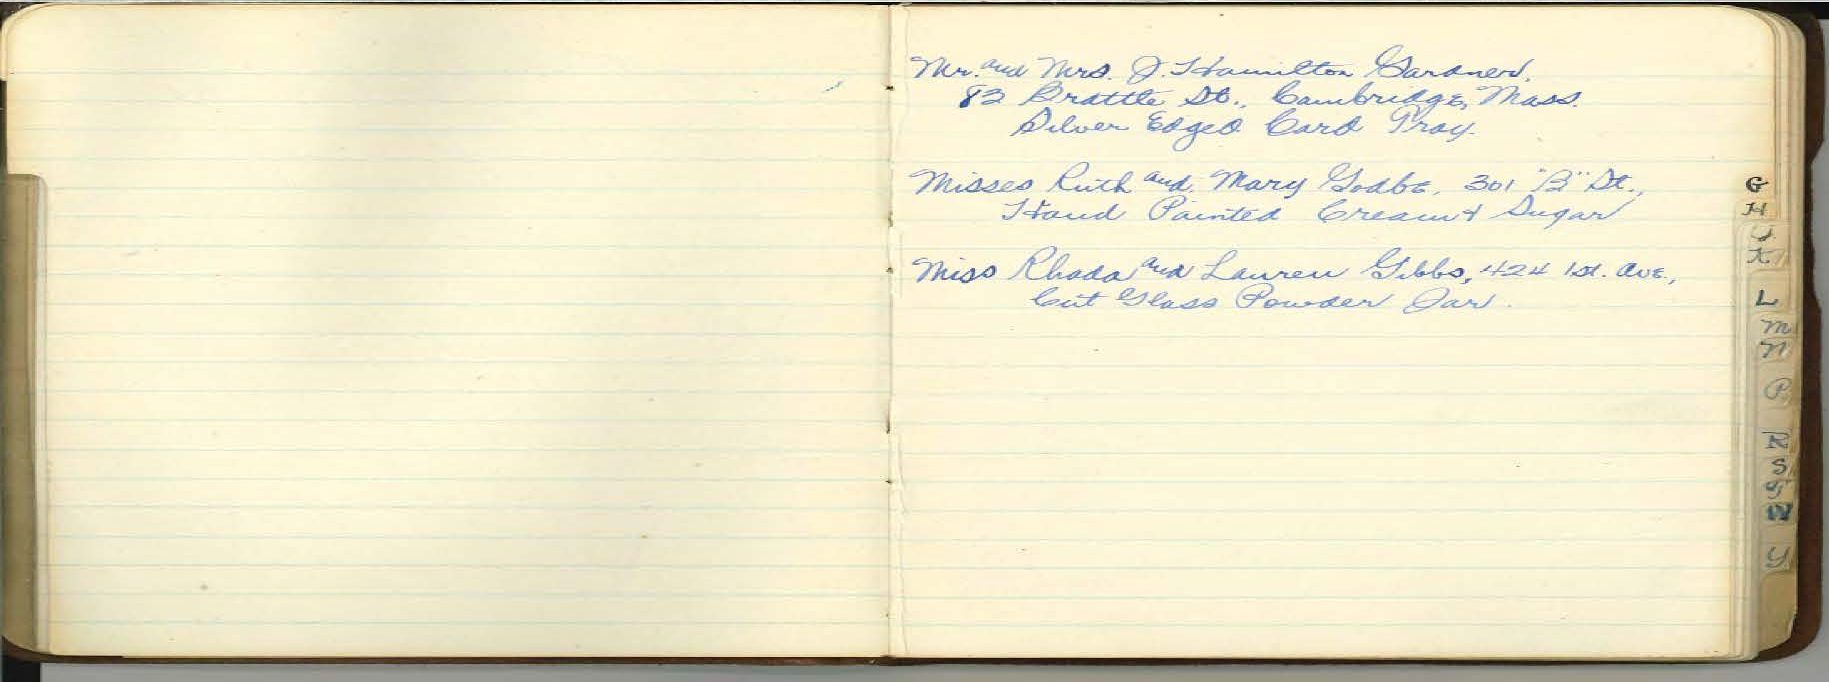 Mr. and Mrs. J. Hamilton Gardner.
82 Brattle St., Cambridge, Mass.
Silver Edged Card Tray.
Misses Ruth and Mary Godbe, 301 "B" St.,
Hand Painted Cream & Sugar
Miss Rhada and Lauren Gibbs, 424 1st. Ave.,
Cut Glass Powder Jar.
G
H
J
K
L
M
N
P
R
S
T
W
Y